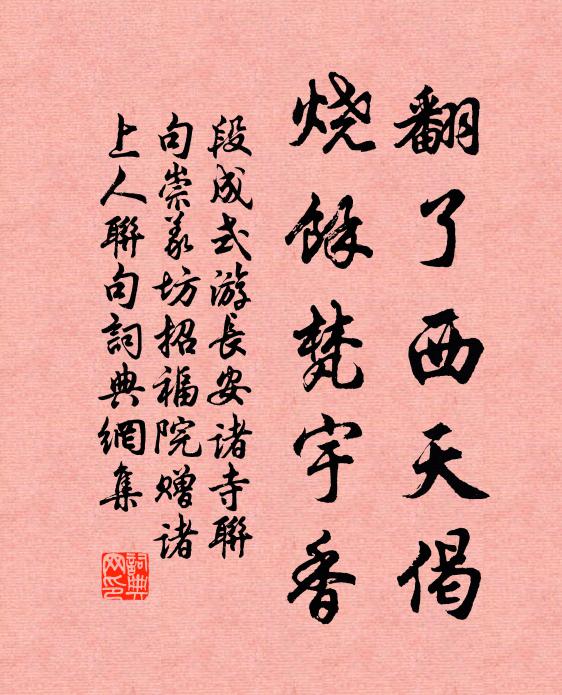 翻了西天偈
烧餘梵宇香
段成式游长安诸寺聯
句崇义坊招福院赠诸
上人聯句詞典網集
詞典
网印